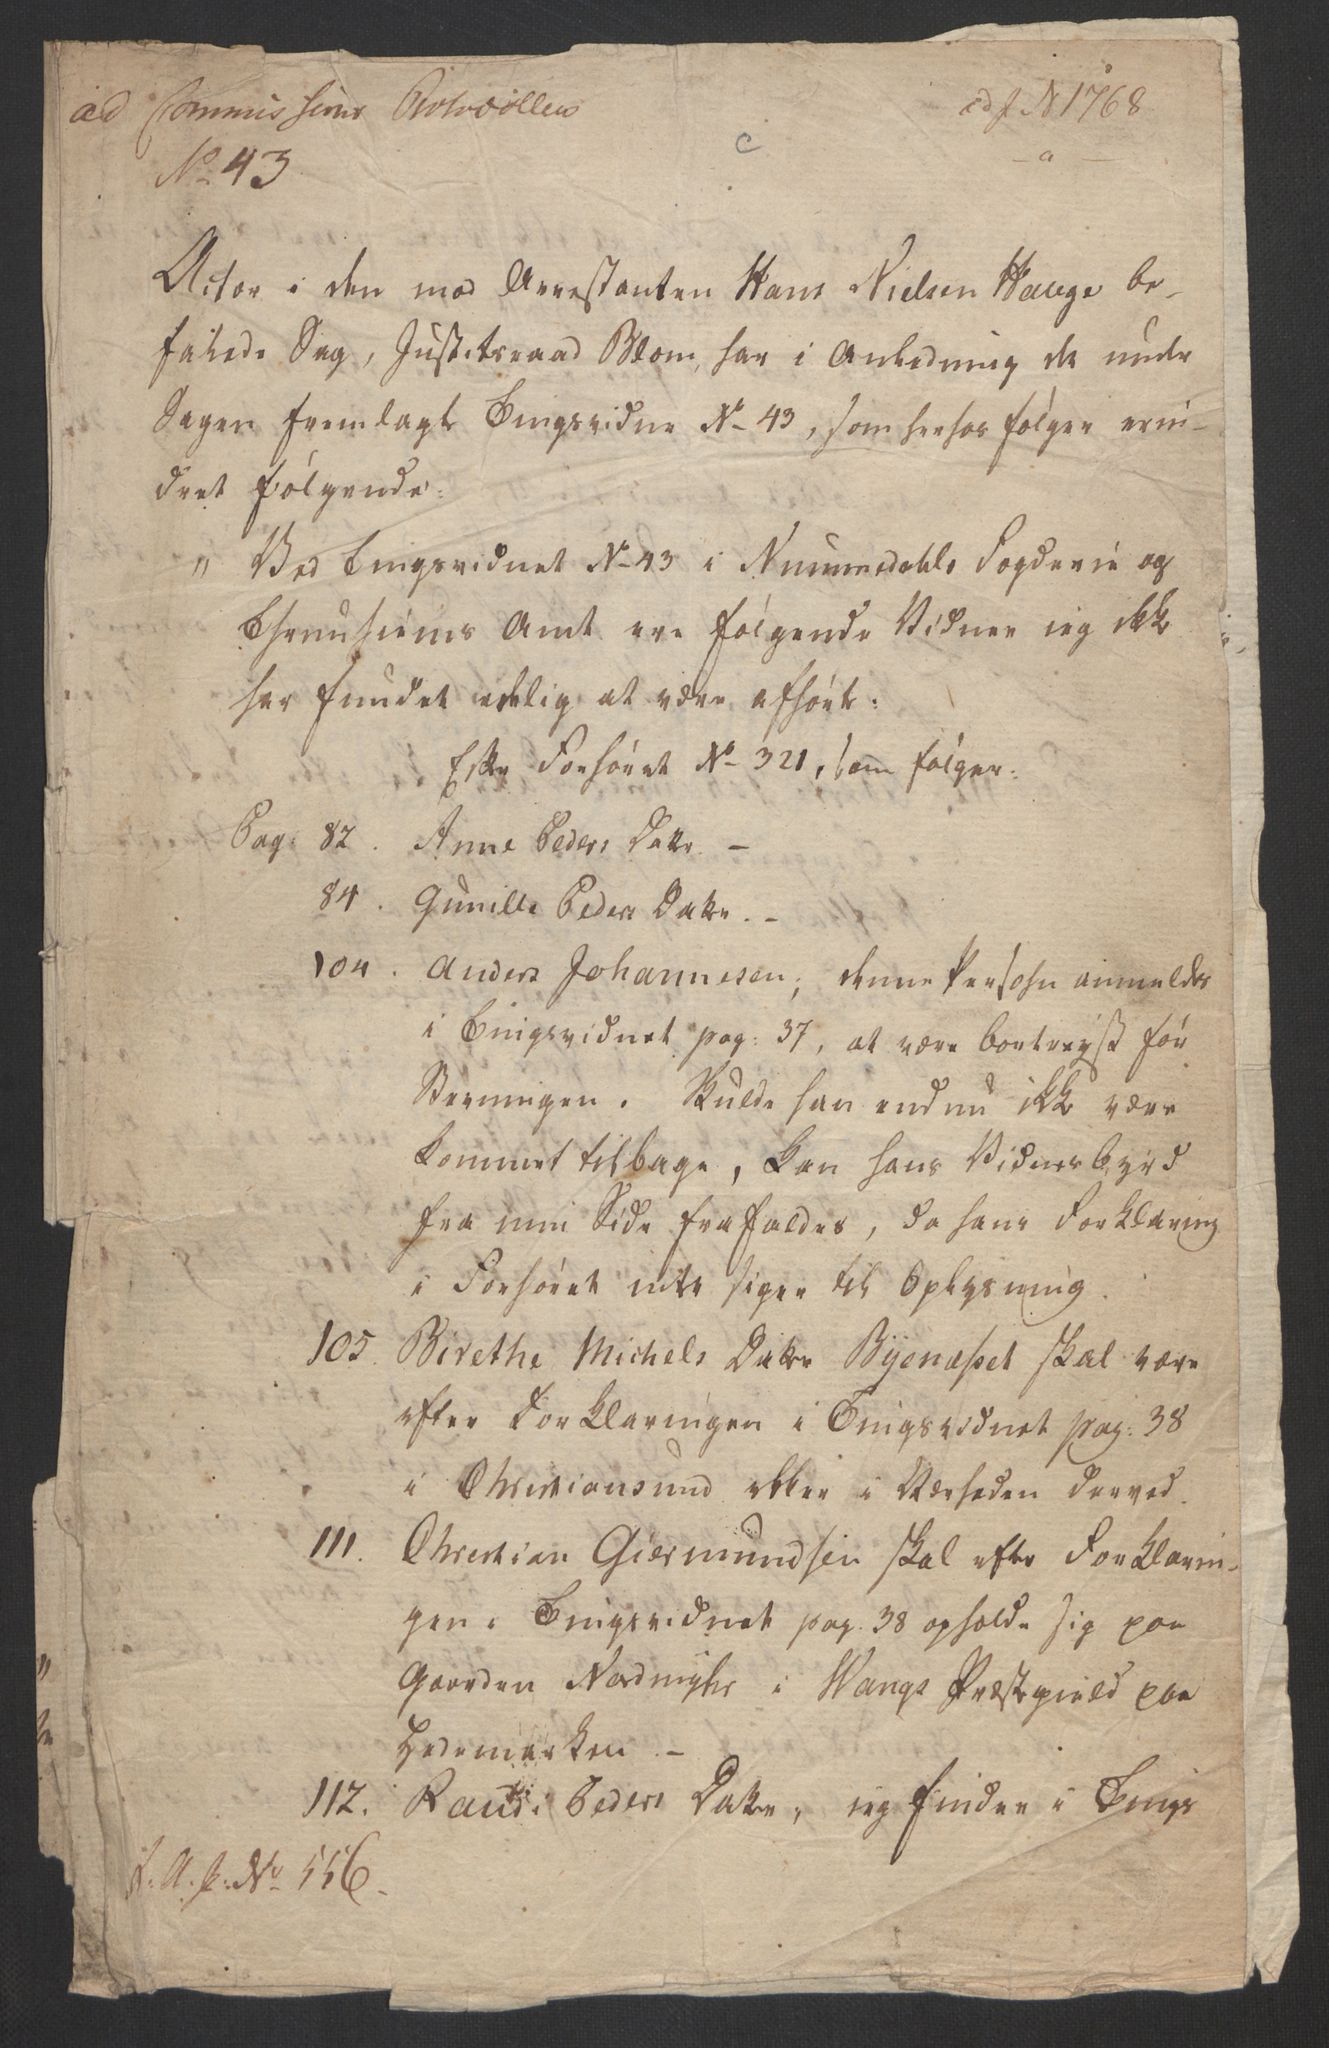 ad Commissions Protocollen
ad J N 1768
a
c
No 43
Actor i den mod Arrestanten Hans Nielsen Hauge be-
falede Sag, Justitsraad Blom, har i Anledning de under
Sagen fremlagte Tingsvidne No 43, som herhos følger erin-
dret følgende:
" Ved Tingsvidnet No 43 i Nummedahls Fogderie og
Thrundhiems Amt ere følgende Vidner ieg ikke
har fundet edelig at være afhørte:
Efter Forhøret No 321, som følger:
Pag: 82. Anne Peders Datter –
84. Gunille Peders Datter. –
104. Anders Johannesen, denne Persohn anmeldes
i Tingsvidnet pag: 37, at være bortreyst før
Stevningen. Skulde han endnu ikke være
kommet tilbage, kan hans Vidnesbyrd
fra min Side frafaldes, da hans Forklaring
i Forhøret intet siger til Oplysning.
105. Birethe Michels Datter Byenæsset skal være
efter Forklaringen i Tingsvidnet pag: 38
i Christiansund eller i Nærheden derved.
111. Christian Giermundsen skal efter Forklarin-
gen i Tingsvidnet pag. 38 opholde sig paa
Gaarden i Wangs Præstegield paa
Hedemarken –
112. Randi Peders Datter, ieg finder i Tings
No 556